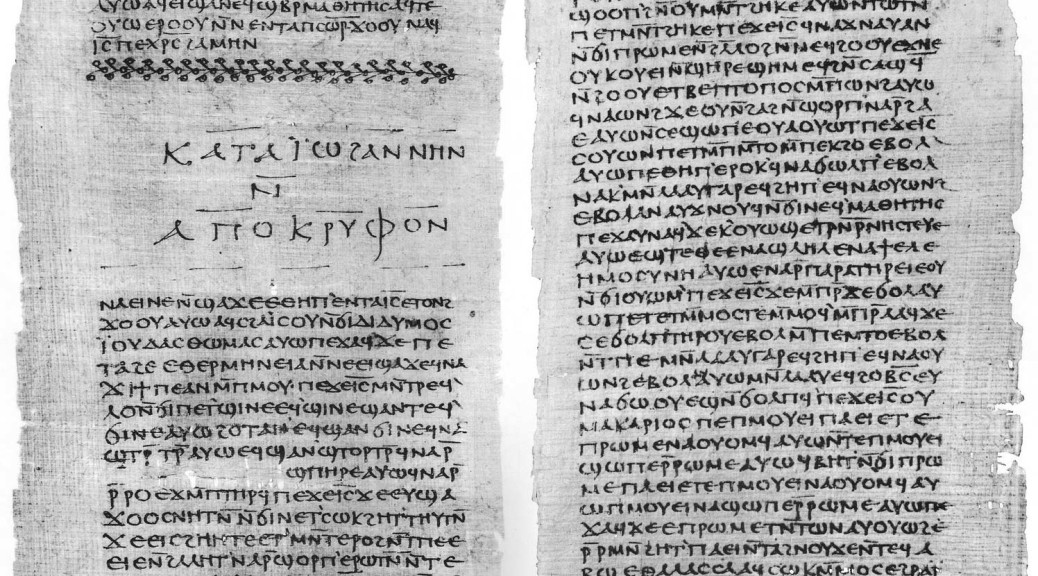 ⲁⲩⲱⲁϥⲉⲓϣⲁⲛⲉϥϣⲃⲣⲙⲁⲑⲏⲧⲏⲥⲁϥⲧⲉ
ⲟⲩⲱⲉⲣⲟⲟⲩⲛ̅ⲛⲉⲛⲧⲁⲡⲥ̅ⲱ̅ⲣ̅ϫⲟⲟⲩⲛⲁϥ
ⲓ̅ⲥ̅ⲡⲉⲭ̅ⲣ̅ⲥ̅ϩⲁⲙⲏⲛ
ⲕⲁⲧⲁⲓⲱϩⲁⲛⲛⲏⲛ
ⲛ̅
ⲁⲡⲟⲕⲣⲩⲫⲟⲛ
ⲛⲁⲉⲓⲛⲉⲛ̅ϣⲁϫⲉⲉⲑⲏⲡ`ⲉⲛⲧⲁⲓ̅ⲥ̅ⲉⲧⲟⲛϩ
ϫⲟⲟⲩⲁⲩⲱⲁϥⲥϩⲁⲓⲥⲟⲩⲛ̅ϭⲓⲇⲓⲇⲩⲙⲟⲥ
ⲓ̈ⲟⲩⲇⲁⲥⲑⲱⲙⲁⲥⲁⲩⲱⲡⲉϫⲁϥϫⲉⲡⲉ
ⲧⲁϩⲉⲉⲑⲉⲣⲙⲏⲛⲉⲓⲁⲛ̅ⲛⲉⲉⲓϣⲁϫⲉϥⲛⲁ
ϫⲓϯⲡⲉⲁⲛⲙ̅ⲡⲙⲟⲩ·ⲡⲉϫⲉⲓ̅ⲥ̅ⲙⲛ̅ⲧⲣⲉϥ`
ⲗⲟⲛ̅ϭⲓⲡⲉⲧϣⲓⲛⲉⲉϥϣⲓⲛⲉϣⲁⲛⲧⲉϥ`
ϭⲓⲛⲉⲁⲩⲱϩⲟⲧⲁⲛⲉϥϣⲁⲛϭⲓⲛⲉϥⲛⲁ
ϣⲧⲣ̅ⲧⲣ̅ⲁⲩⲱⲉϥϣⲁⲛϣⲧⲟⲣⲧⲣ̅ϥⲛⲁⲣ̅
ϣⲡⲏⲣⲉⲁⲩⲱϥⲛⲁⲣ̅
ⲣ̅ⲣⲟⲉϫⲙ̅ⲡⲧⲏⲣϥⲡⲉϫⲉⲓ̅ⲥ̅ϫⲉⲉⲩϣⲁ
ϫⲟⲟⲥⲛⲏⲧⲛ̅ⲛ̅ϭⲓⲛⲉⲧ`ⲥⲱⲕϩⲏⲧ`ⲧⲏⲩⲧⲛ̅
ϫⲉⲉⲓⲥϩⲏⲏⲧⲉⲉⲧ`ⲙⲛ̅ⲧⲉⲣⲟϩⲛ̅ⲧⲡⲉⲉ
ⲉⲓⲉⲛ̅ϩⲁⲗⲏⲧ`ⲛⲁⲣ̅ϣⲟⲣⲡ`ⲉⲣⲱⲧⲛ̅ⲛ̅ⲧⲉ
ϣⲟⲟⲡ`ϩⲛ̅ⲟⲩⲙⲛ̅ⲧϩⲏⲕⲉⲁⲩⲱⲛ̅ⲧⲱⲧⲛ̅
ⲡⲉⲧⲙⲛ̅ⲧϩⲏⲕⲉⲡⲉϫⲉⲓ̅ⲥ̅ϥⲛⲁϫⲛⲁⲩⲁⲛ
ⲛ̅ϭⲓⲡⲣⲱⲙⲉⲛ̅ϩⲗ̅ⲗⲟϩⲛ̅ⲛⲉϥϩⲟⲟⲩⲉϫⲛⲉ
ⲟⲩⲕⲟⲩⲉⲓⲛ̅ϣⲏⲣⲉϣⲏⲙⲉϥϩⲛ̅ⲥⲁϣϥ̅
ⲛ̅ϩⲟⲟⲩⲉⲧⲃⲉⲡⲧⲟⲡⲟⲥⲙ̅ⲡⲱⲛϩⲁⲩⲱ
ϥⲛⲁⲱⲛϩϫⲉⲟⲩⲛ̅ϩⲁϩⲛ̅ϣⲟⲣⲡ`ⲛⲁⲣ̅ϩⲁ
ⲉⲁⲩⲱⲛ̅ⲥⲉϣⲱⲡⲉⲟⲩⲁⲟⲩⲱⲧⲡⲉϫⲉⲓ̅ⲥ̅
ⲥⲟⲩⲱⲛⲡⲉⲧⲙ̅ⲡⲙ̅ⲧⲟⲙ̅ⲡⲉⲕϩⲟⲉⲃⲟⲗ`
ⲁⲩⲱⲡⲉⲑⲏⲡ`ⲉⲣⲟⲕ`ϥⲛⲁϭⲱⲗⲡ`ⲉⲃⲟⲗ
ⲛⲁⲕ`ⲙⲛ̅ⲗⲁⲁⲩⲅⲁⲣⲉϥϩⲏⲡ`ⲉϥⲛⲁⲟⲩⲱⲛϩ
ⲉⲃⲟⲗⲁⲛⲁⲩϫⲛⲟⲩϥⲛ̅ϭⲓⲛⲉϥ`ⲙⲁⲑⲏⲧⲏⲥ
ⲡⲉϫⲁⲩⲛⲁϥϫⲉⲕ`ⲟⲩⲱϣⲉⲧⲣⲛ̅ⲣ̅ⲛⲏⲥⲧⲉⲩⲉ
ⲁⲩⲱⲉϣⲧⲉⲑⲉⲉⲛⲁϣⲗⲏⲗⲉⲛⲁϯⲉⲗⲉ
ⲏⲙⲟⲥⲩⲛⲏⲁⲩⲱⲉⲛⲁⲣ̅ⲡⲁⲣⲁⲧⲏⲣⲉⲓⲉⲟⲩ
ⲛ̅ϭⲓⲟⲩⲱⲙ`ⲡⲉϫⲉⲓ̅ⲥ̅ϫⲉⲙ̅ⲡⲣ̅ϫⲉϭⲟⲗⲁⲩ
ⲱⲡⲉⲧⲉⲧⲙ̅ⲙⲟⲥⲧⲉⲙ̅ⲙⲟϥ`ⲙ̅ⲡⲣ̅ⲁⲁϥϫⲉ
ⲥⲉϭⲟⲗⲡ`ⲧⲏⲣⲟⲩⲉⲃⲟⲗⲙ̅ⲡⲉⲙⲧⲟⲉⲃⲟⲗ
ⲛ̅ⲧⲡⲉⲙⲛ̅ⲗⲁⲁⲩⲅⲁⲣⲉϥϩⲏⲡ`ⲉϥⲛⲁⲟⲩ
ⲱⲛϩⲉⲃⲟⲗⲁⲛⲁⲩⲱⲙⲛ̅ⲗⲁⲁⲩⲉϥϩⲟⲃ̅ⲥ̅ⲉⲩ
ⲛⲁϭⲱⲟⲩⲉϣⲛ̅ϭⲟⲗⲡϥ`ⲡⲉϫⲉⲓ̅ⲥ̅ⲟⲩ
ⲙⲁⲕⲁⲣⲓⲟⲥⲡⲉⲡⲙⲟⲩⲉⲓⲡⲁⲉⲓⲉⲧⲉ
ⲡⲣⲱⲙⲉⲛⲁⲟⲩⲟⲙϥⲁⲩⲱⲛ̅ⲧⲉⲡⲙⲟⲩⲉⲓ
ϣⲱⲡⲉⲣ̅ⲣⲱⲙⲉⲁⲩⲱϥⲃⲏⲧ`ⲛ̅ϭⲓⲡⲣⲱ
ⲙⲉⲡⲁⲉⲓⲉⲧⲉⲡⲙⲟⲩⲉⲓⲛⲁⲟⲩⲟⲙϥⲁⲩ
ⲱⲡⲙⲟⲩⲉⲓⲛⲁϣⲱⲡⲉⲣ̅ⲣⲱⲙⲉⲁⲩⲱⲡⲉ
ϫⲁϥϫⲉⲉⲡⲣⲱⲙⲉⲧⲛ̅ⲧⲱⲛⲁⲩⲟⲩⲱϩⲉ
ⲣ̅ⲣⲙⲛ̅ϩⲏⲧ`ⲡⲁⲉⲓⲛ̅ⲧⲁϩⲛⲟⲩϫⲉⲛ̅ⲧⲉϥⲁ
ⲃⲱⲉⲑⲁⲗⲁⲥⲥⲁⲁϥⲥⲱⲕⲙ̅ⲙⲟⲥⲉϩⲣⲁⲓ